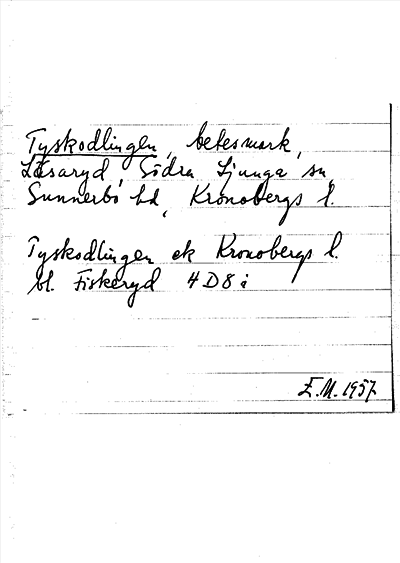 Tyskodlingen, betesmark,
Läsaryd, Södra Ljunga sn,
Sunnerbo hd, Kronobergs l.
Tyskodlingen ek Kronobergs l.
bl. Fiskeryd 4 D 8 i
E.M. 1957